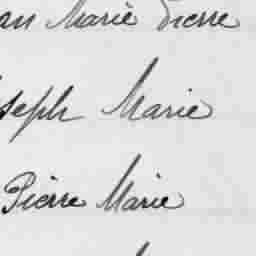 an Marie Pierre
seph Marie
Pierre Marie